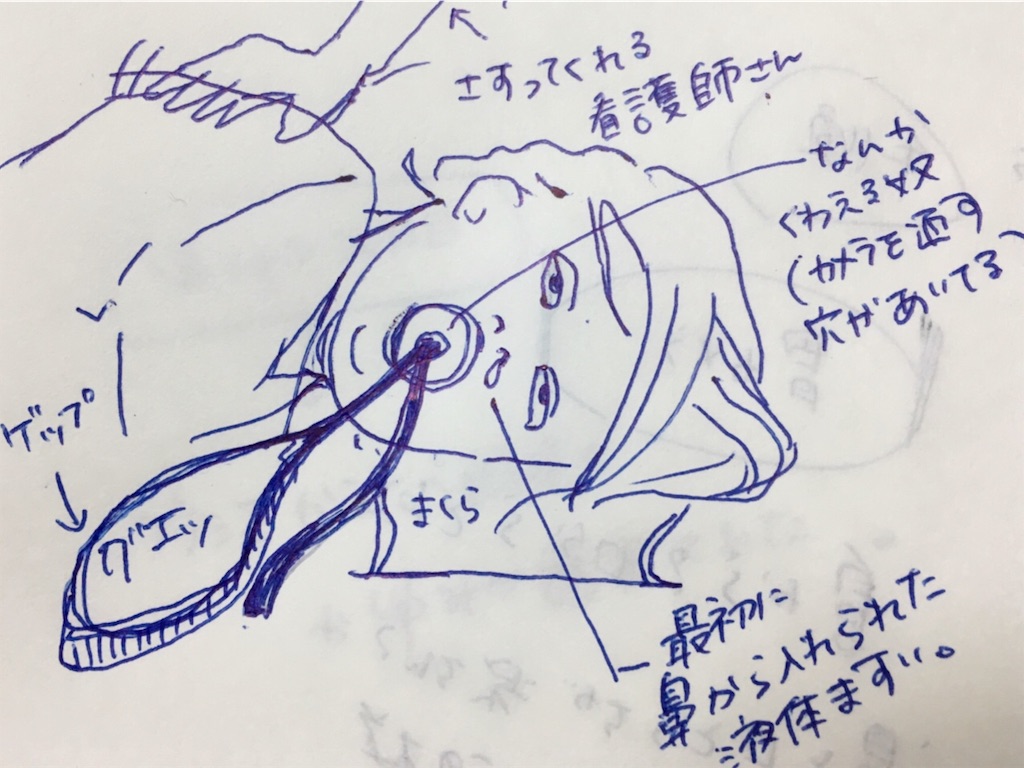 さすってくれる
看護師さん
なんか
くわえる奴
(カメラを通す
穴があいてる)
ゲップ
グエッ
まくら
最初に
鼻から入れられた
液体まずい。